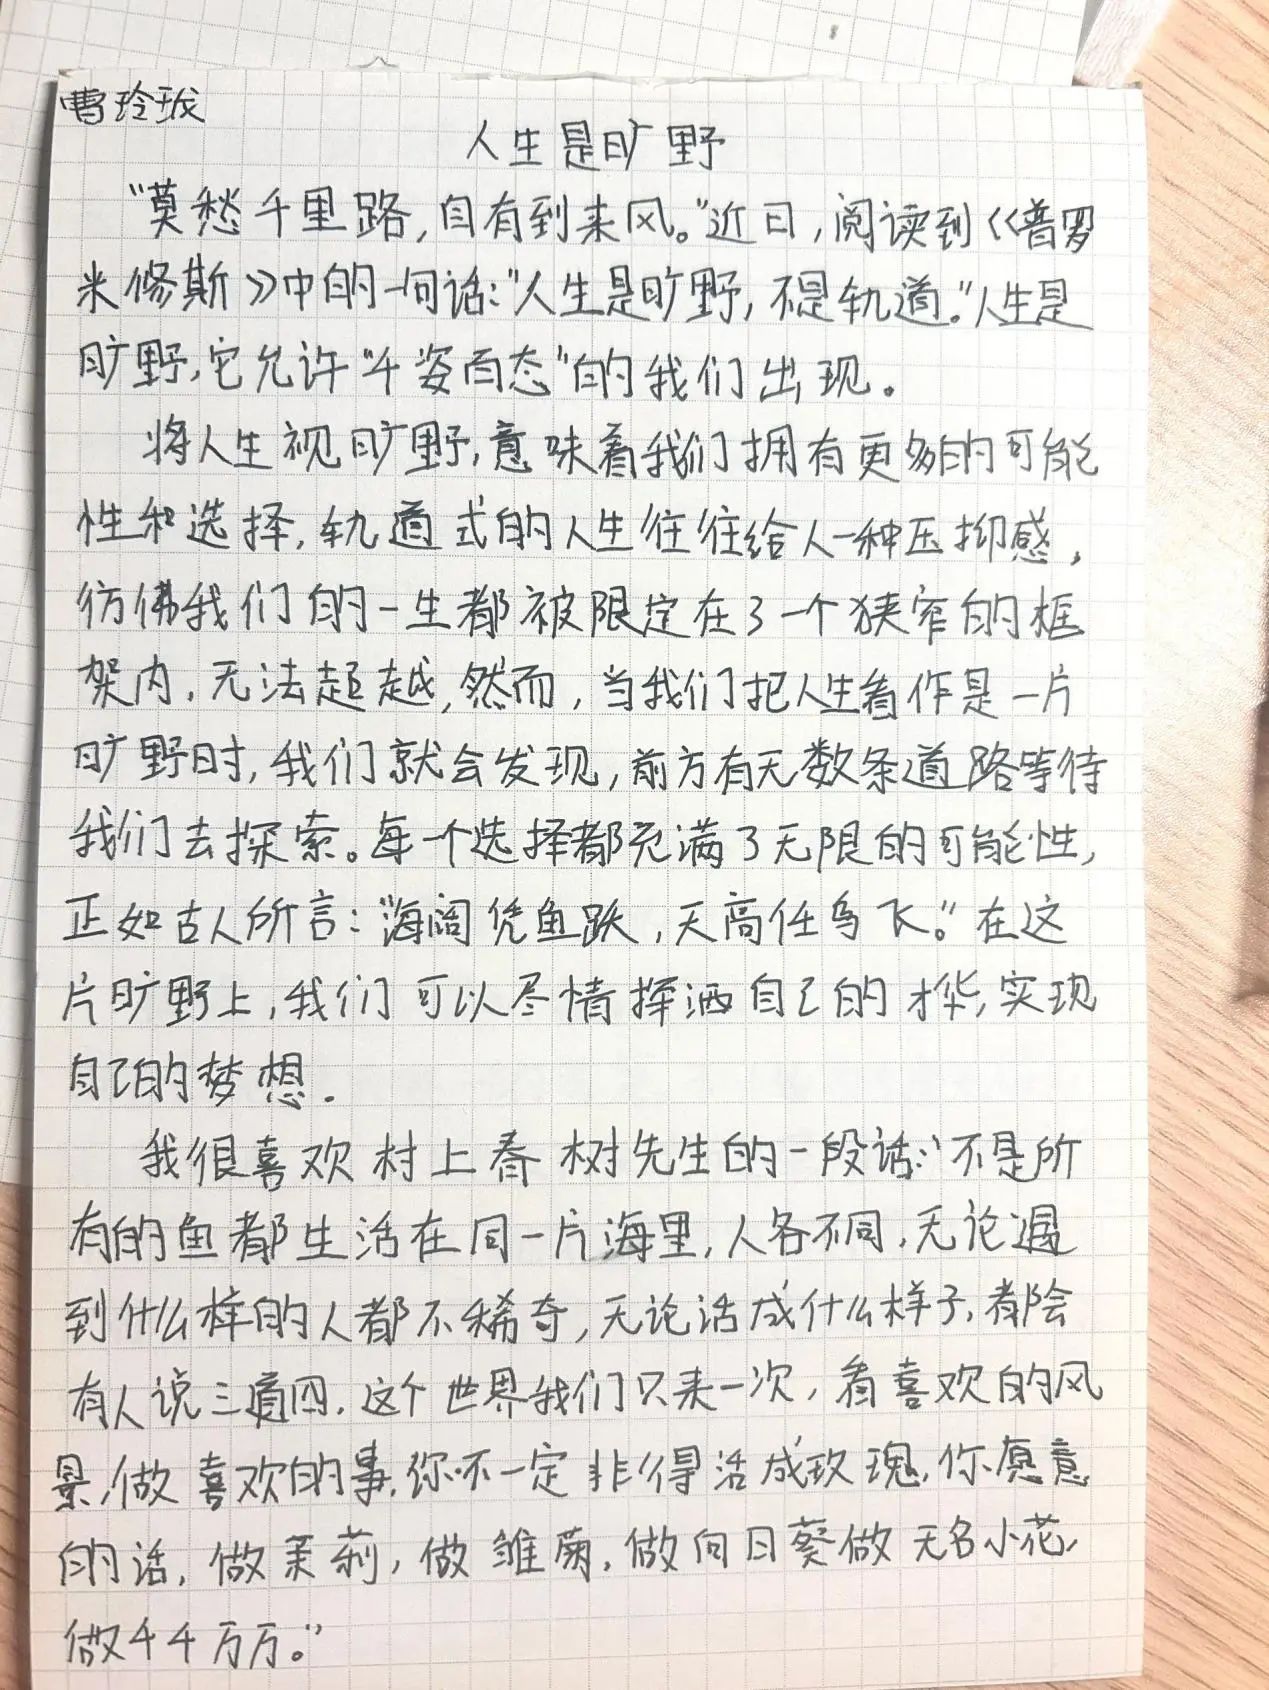 曹玲珑
人生是旷野
“莫愁千里路,自有到来风。”近日,阅读到《普罗
米修斯》中的一句话:“人生是旷野,不是轨道。”人生是
旷野,它允许“千姿百态”的我们出现。
将人生视旷野,意味着我们拥有更多的可能
性和选择,轨道式的人生往往给人一种压抑感,
彷彿我们的一生都被限定在了一个狭窄的框
架内,无法超越,然而,当我们把人生看作是一片
旷野时,我们就会发现,前方有无数条道路等待
我们去探索。每一个选择都充满了无限的可能性,
正如古人所言:“海阔凭鱼跃,天高任鸟飞。”在这
片旷野上,我们可以尽情挥洒自己的才华,实现
自己的梦想.
我很喜欢村上春树先生的一段话:“不是所
有的鱼都生活在同一片海里,人各不同,无论遇
到什么样的人都不稀奇,无论活成什么样子,都会
有人说三道四,这个世界我们只来一次,看喜欢的风
景,做喜欢的事,你不一定非得活成玫瑰,你愿意
的话,做茉莉,做雏菊,做向日葵做无名小花,
做千千万万。”